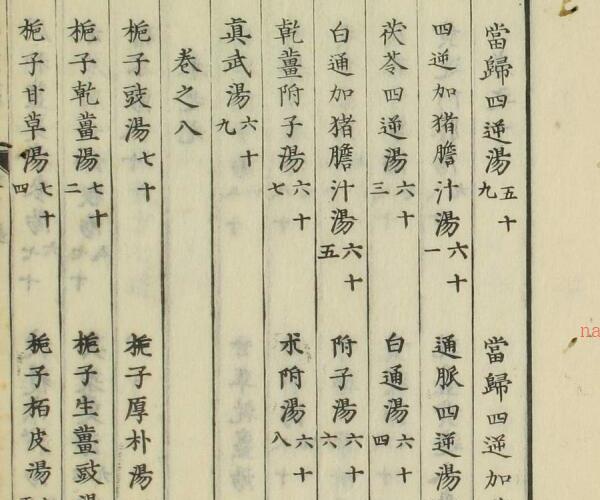 當歸四逆湯五十九 當歸四逆加
四逆加猪膽汁湯六十一 通脈四逆湯
茯苓四逆湯六十三 白通湯六十四
白通加猪膽汁湯六十五 附子湯六十六
乾薑附子湯六十七 朮附湯六十八
眞武湯六十九
卷之八
梔子豉湯七十 梔子厚朴湯
梔子乾薑湯七十二 梔子生薑豉湯
梔子甘草陽七十四 梔子栢皮湯
na